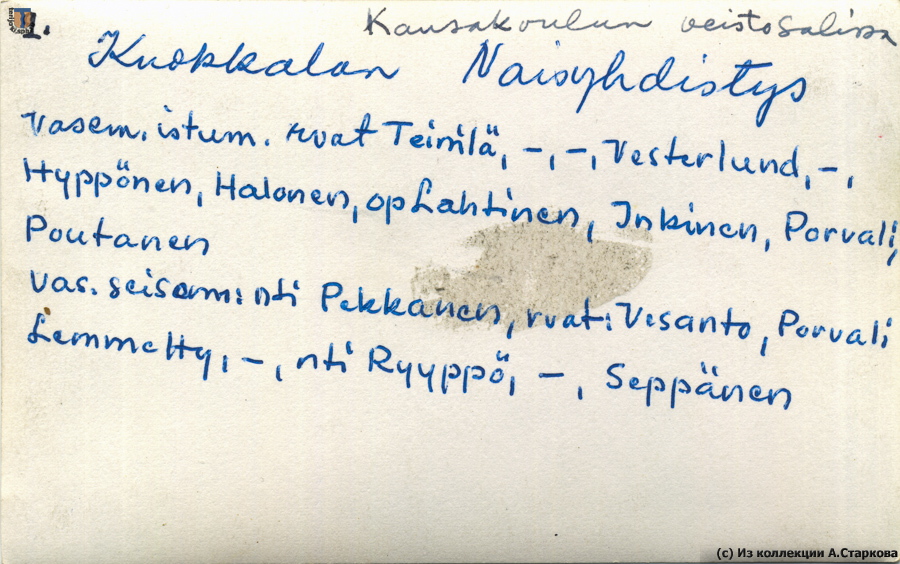 Kansakoulun veistosalissa
1.
Kuokkalan Naisyhdistys
Vasem. istum. rvat Teinilä, -, -, Vesterlund, -,
Hyppönen, Halonen, op Lahtinen, Inkinen, Porvali,
Poutanen
vas. seisom: nti Pekkanen, rvat: Vesanto, Porvali
Lemmetty, -, nti Ryyppö, -, Seppänen
(c) Из коллекции А.Старкова